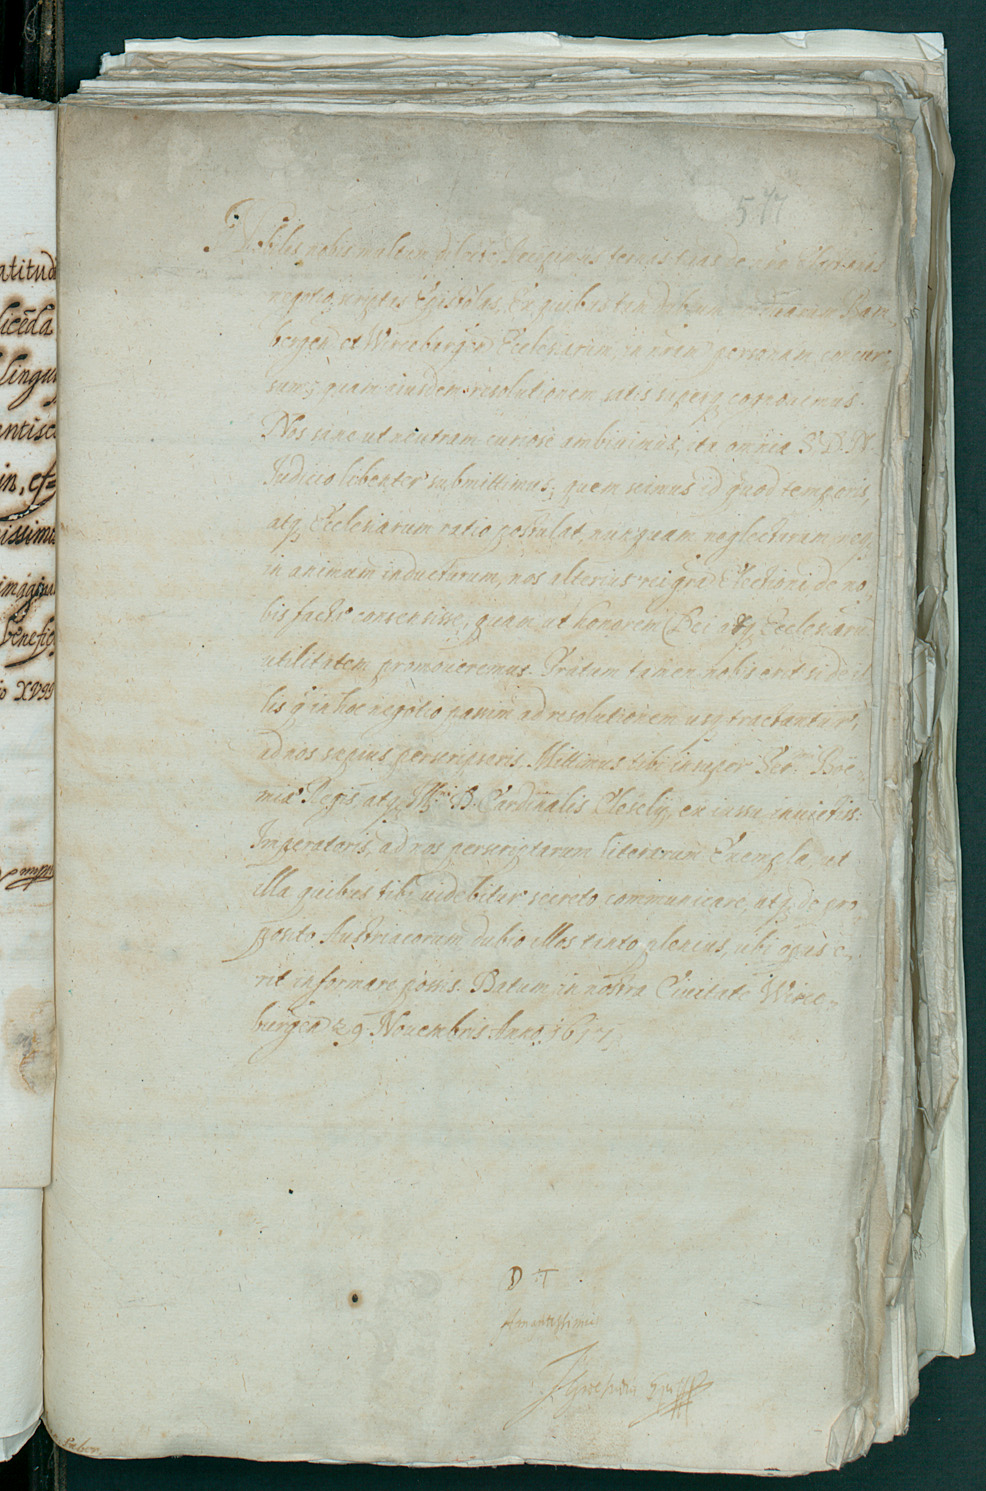 atitud
licēda
lingu
antisc
in, ess
issimi
imaginu
benefic
io XVII
577
Nobilis nobis multum dilecte, Accepimus ternas tuas de
negotio scriptas Epistolas, Ex quibus tam dubium Bam,,
bergen et Wirceburgen Ecclesiarum, in nram personam concur,,
sum; quam eiusdem resolutionem satis superq cognouimus.
Nos sane ut neutram curiose ambiuimus, ita omnia S. D. N.
Iudicio libenter submittimus, quem scimus id quod temporis,
atq Ecclesiarum ratio postulat, nunquam neglecturum, neq
in animum inducturum, nos alterius rei gra Electioni de no,,
bis factae consensisse, quam ut honorem Dei atq Ecclesiarum
utilitatem promoueremus. Gratum tamen nobis erit si de il,,
lis q in hoc negotio passim ad resolutionem usq tractantur,
ad nos saepius perscripseris. Mittimus tibi insuper Ser. Boë,,
miae Regis atq Illmi D. Cardinalis Cleselij, ex iussu inuictiss:
Imperatoris, ad nos perscriptarum literarum Exempla, ut
illa quibus tibi uidebitur secreto communicare, atq de pro,,
posito Austriacorum dubio illos tanto plenius, ubi opus e,,
rit informare possis. Datum in nostra Ciuitate Wirce,,
burgen 29 Nouembris Anno 1617.
D T
Amantissimus